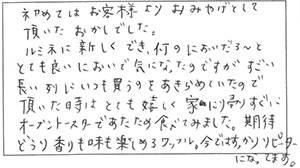 初めてはお客様よりおみやげとして
頂いたおかしでした。
ルミネに新しくでき、何のにおいだろ～と
とても良いにおいで気になったのですがすごい
長い列にいつも買うのをあきらめていたので
頂いた時はとても嬉しく家に帰りすぐに
オーブントースターであたため食べてみました。期待
どうり香りも味も楽しめるワッフル。今ですっかりリピーター
になってます。